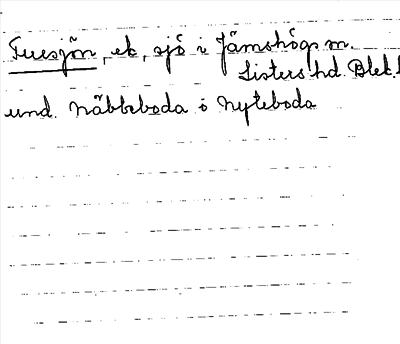 Tuesjön, ek, sjö i Jämshögs sn.
Listers hd. Blek.l
und. Näbbeboda o Nyteboda